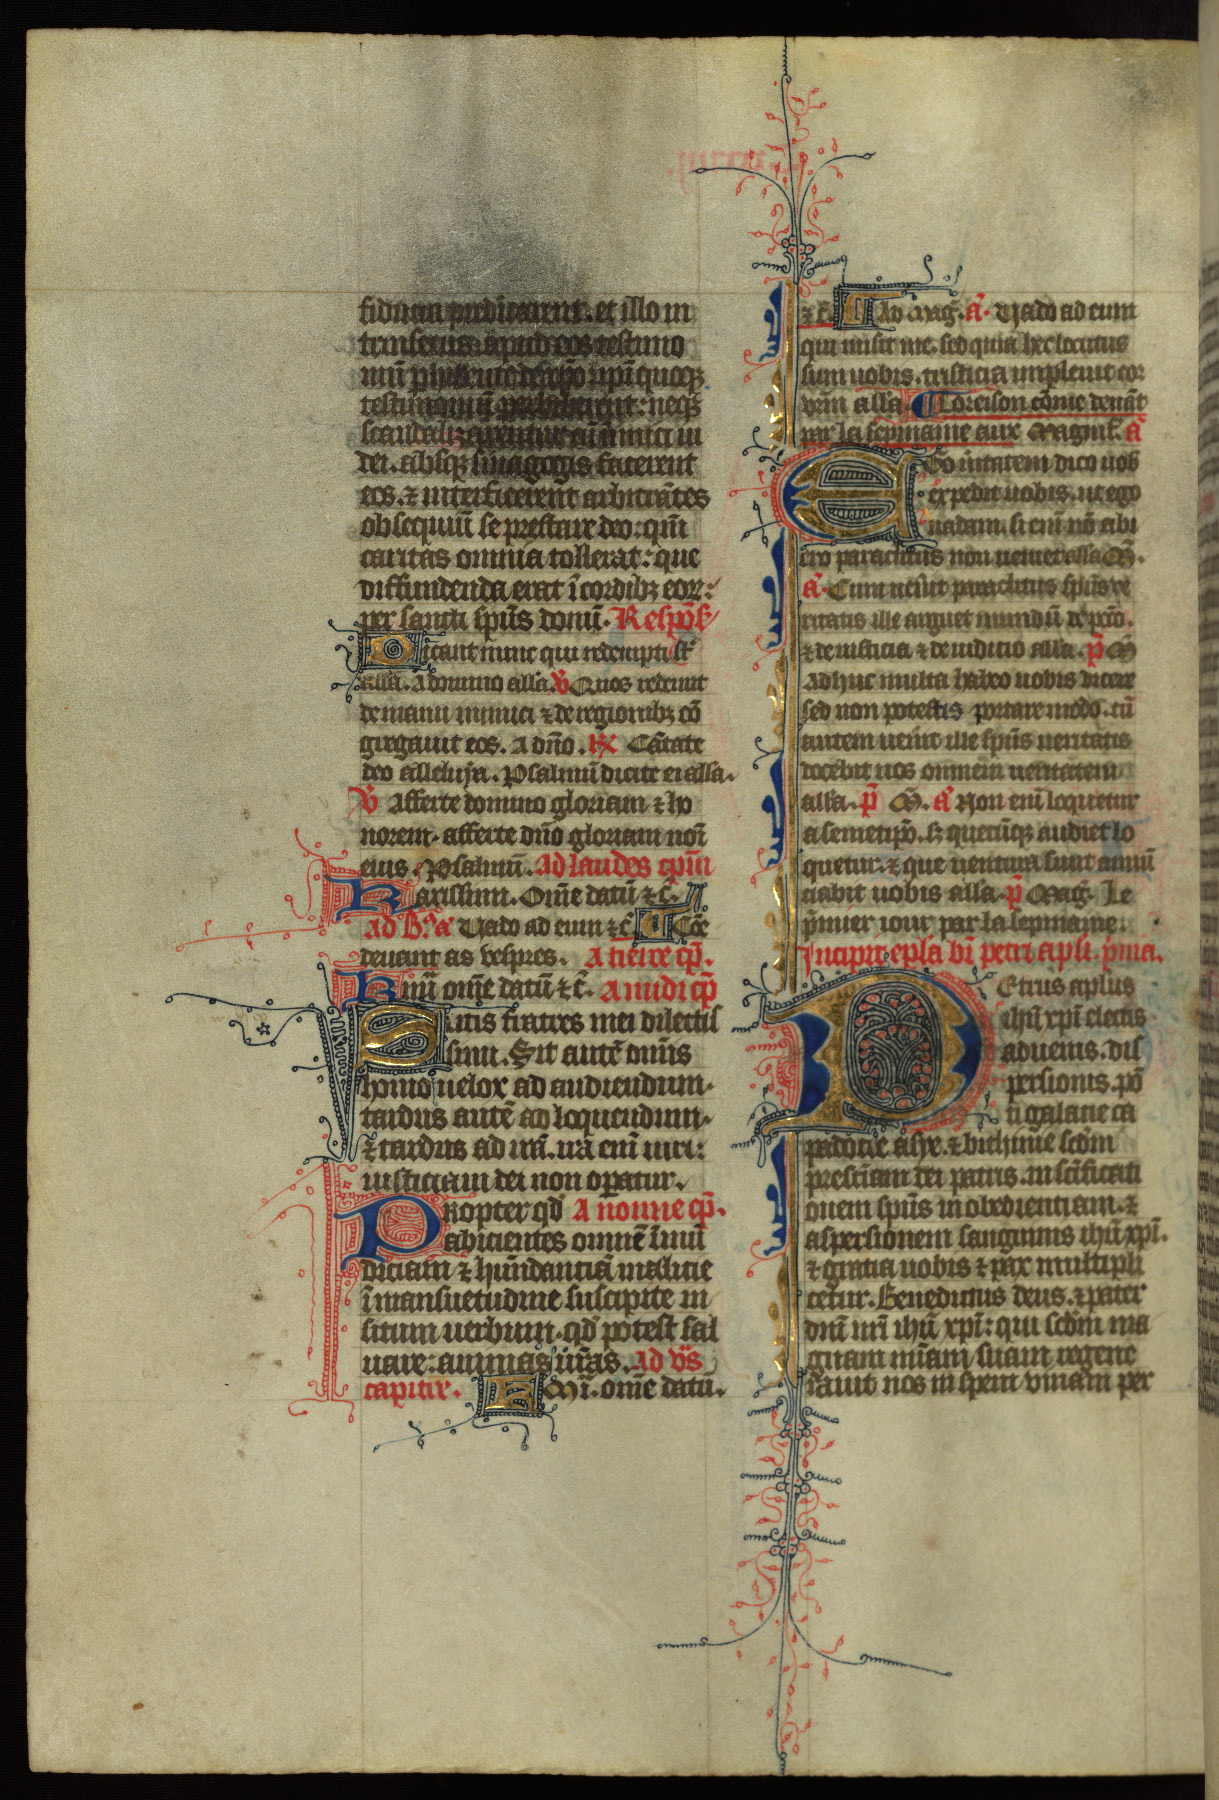 fiduciā predicarent. et illo in
trinsecus apud eos testimo
niū phibente de xp̄o ip̄i quoq;
testimoniū perhiberent: neq;
scandalizarentur cū inimici
dei. absq; sinagogis facerent
eos. ⁊ interficerent arbitrātes
obsequiū se prestare deo: qm̄
caritas omnia tollerat: que
diffundenda erat ī cordib; eoꝝ:
per sancti spūs donū. Respōs̄
Dicant nunc qui redempti st̄
alla. a domino alla. ℣ Quos redemit
de manu inimici ⁊ de regionib; cō
gregauit eos. A dn̄o. ℟ Cātate
deo alleluya. Psalmū dicite ei alla.
℣ Afferte domino gloriam ⁊ ho
norem. afferte dn̄o gloriam noī
eius. Psalmū. Ad laudes cp̄m
Karissimi. Om̄e datū ⁊c̄.
Ad B. ā Uado ad eum ⁊c̄ Cōe
deuant as vespres. A tierce cp̄.
Kmī om̄e datū ⁊c̄. A midi cp̄
Scitis fratres mei dilectis
simi. Sit autē om̄is
homo uelox ad audiendum.
tardus autē ad loquendum.
⁊ tardus ad irā. ira enī uiri:
iusticiam dei non opatur.
Propter qd̄ A nonne cp̄.
abicientes omnē īmū
diciam ⁊ habundanciā malicie
ī mansuetudine suscipite in
situm uerbum. qd̄ potest sal
uare: animas ur̄as. Ad vs̄
capitre. Kmī. om̄e datū.
⁊c̄. Ad mag̅. ā. Uado ad eum
qui misit me. sed quia hec locutus
sum uobis. tristicia impleuit cor
vr̄m alla. Loreison cōme deuāt
par la sepmaine aux magnif̄. ā
Ego ūitatem dico uob
expedit uobis. ut ego
uadam. si enī nō abi
ero paraclitus non ueniet alla M̄.
ā. Cum uen̄it paraclitus spūs ve
ritatis ille arguet mundū de pctō.
⁊ de iusticia ⁊ de iudicio alla. p̄ M̄
Adhuc multa habeo uobis dicere
sed non potestis portare modo. cū
autem uen̄it ille spūs ueritatis
docebit uos omnem ueritatem
alla. p̄ M̄. ā Non enī loquetur
a semetip̄o. s; quecūq; audiet lo
quetur. ⁊ que uentura sunt annū
ciabit uobis alla. p̄ Mag̅. Le
p̄mier iour par la sepmaine.
Incipit epl̄a bī petri apl̄i. p̄ma.
Petrus aplus
ihū xp̄i electis
aduenis. dis
persionis. pō
ti galacie ca
padocie asye. ⁊ bithinie scd̄m
presciam dei patris. in sc̄ificati
onem spūs in obedientiam. ⁊
aspersionem sanguinis ihū xp̄i.
⁊ gratia uobis ⁊ pax multipli
cetur. Benedictus deus. ⁊ pater
dnī nrī ihū xp̄i: qui scd̄m ma
gnam mīam suam regene
rauit nos in spem viuam per